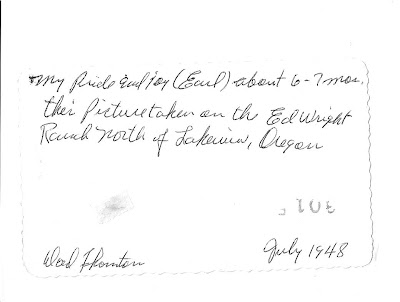 My Pride and joy (Earl) about 6-7 mos.
this Picture taken on the Ed Wright
Ranch North of Lakeview, Oregon
301
Thornton
July 1948